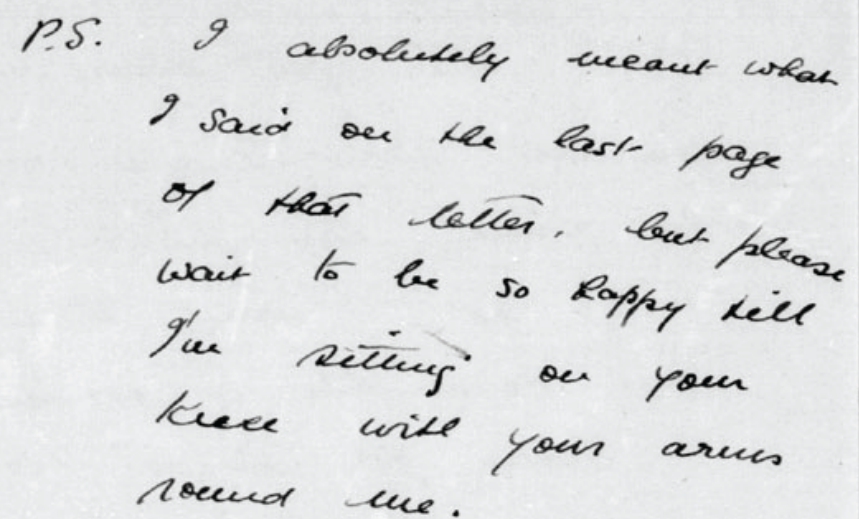 P.S. I absolutely meant what
I said on the last page
of that letter, but please
wait to be so happy till
I'm sitting on your
knee with your arms
round me.